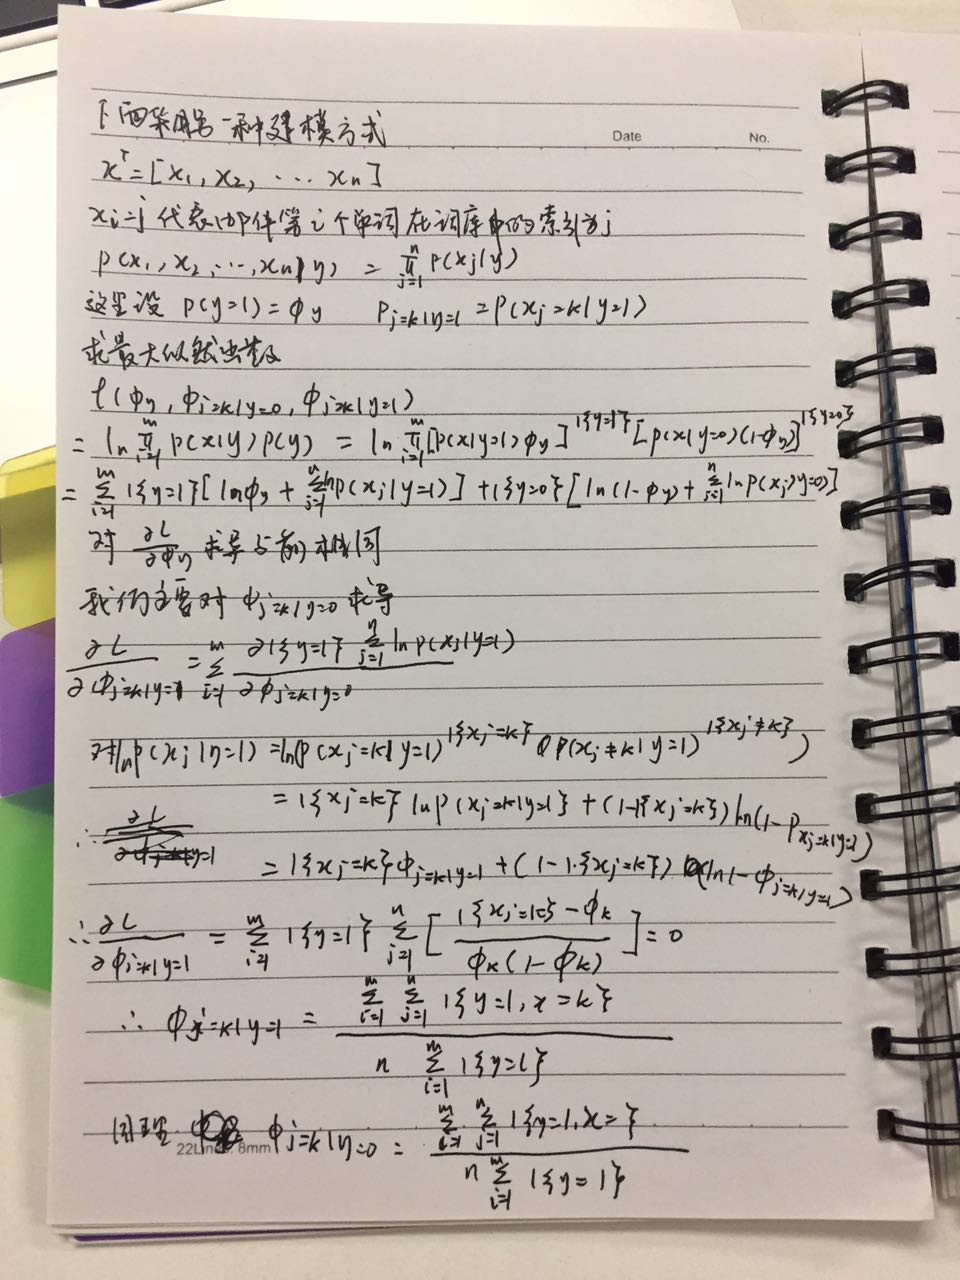 Date No.
下面采用另一种建模方式
x^T = [x₁, x₂, ... xₙ]
xᵢ=j 代表邮件第 i 个单词在词库中的索引为j
p(x₁, x₂, ..., xₙ|y) = ∏_{j=1}^{n} p(xⱼ|y)
这里设 p(y=1) = φy P_{j=k|y=1} = p(xⱼ=k|y=1)
求最大似然函数
ℓ(φy, φ_{j=k|y=0}, φ_{j=k|y=1})
= ln ∏_{i=1}^{m} p(x|y) p(y) = ln ∏_{i=1}^{m} [p(x|y=1) φy]^{1{y=1}} [p(x|y=0)(1-φy)]^{1{y=0}}
= ∑_{i=1}^{m} 1{y=1} [lnφy + ∑_{j=1}^{n} ln p(xⱼ|y=1)] + 1{y=0} [ln(1-φy) + ∑_{j=1}^{n} ln p(xⱼ|y=0)]
对 ∂L/∂φy 求导与前 相同
我们主要对 φ_{j=k|y=0} 求导
∂L/∂φ_{j=k|y=1} = ∑_{i=1}^{m} ∂1{y=1} ∑_{j=1}^{n} ln p(xⱼ|y=1) / ∂φ_{j=k|y=0}
对 ln p(xⱼ|y=1) = ln(p(xⱼ=k|y=1)^{1{xⱼ=k}} p(xⱼ≠k|y=1)^{1{xⱼ≠k}})
= 1{xⱼ=k} ln p(xⱼ=k|y=1} + (1-1{xⱼ=k}) ln(1-P_{xⱼ=k|y=1})
∴ = 1{xⱼ=k} φ_{j=k|y=1} + (1-1{xⱼ=k}) (ln1-φ_{j=k|y=1})
∴ ∂L/∂φ_{j=k|y=1} = ∑_{i=1}^{m} 1{y=1} ∑_{j=1}^{n} [(1{xⱼ=1=} - φk) / (φk(1-φk))] = 0
∴ φ_{j=k|y=1} = ∑_{i=1}^{m} ∑_{j=1}^{n} 1{y=1, x=k} / n ∑_{i=1}^{m} 1{y=1}
同理 φ_{j=k|y=0} = ∑_{i=1}^{m} ∑_{j=1}^{n} 1{y=1, x=} / n ∑_{i=1}^{m} 1{y=1}
8mm